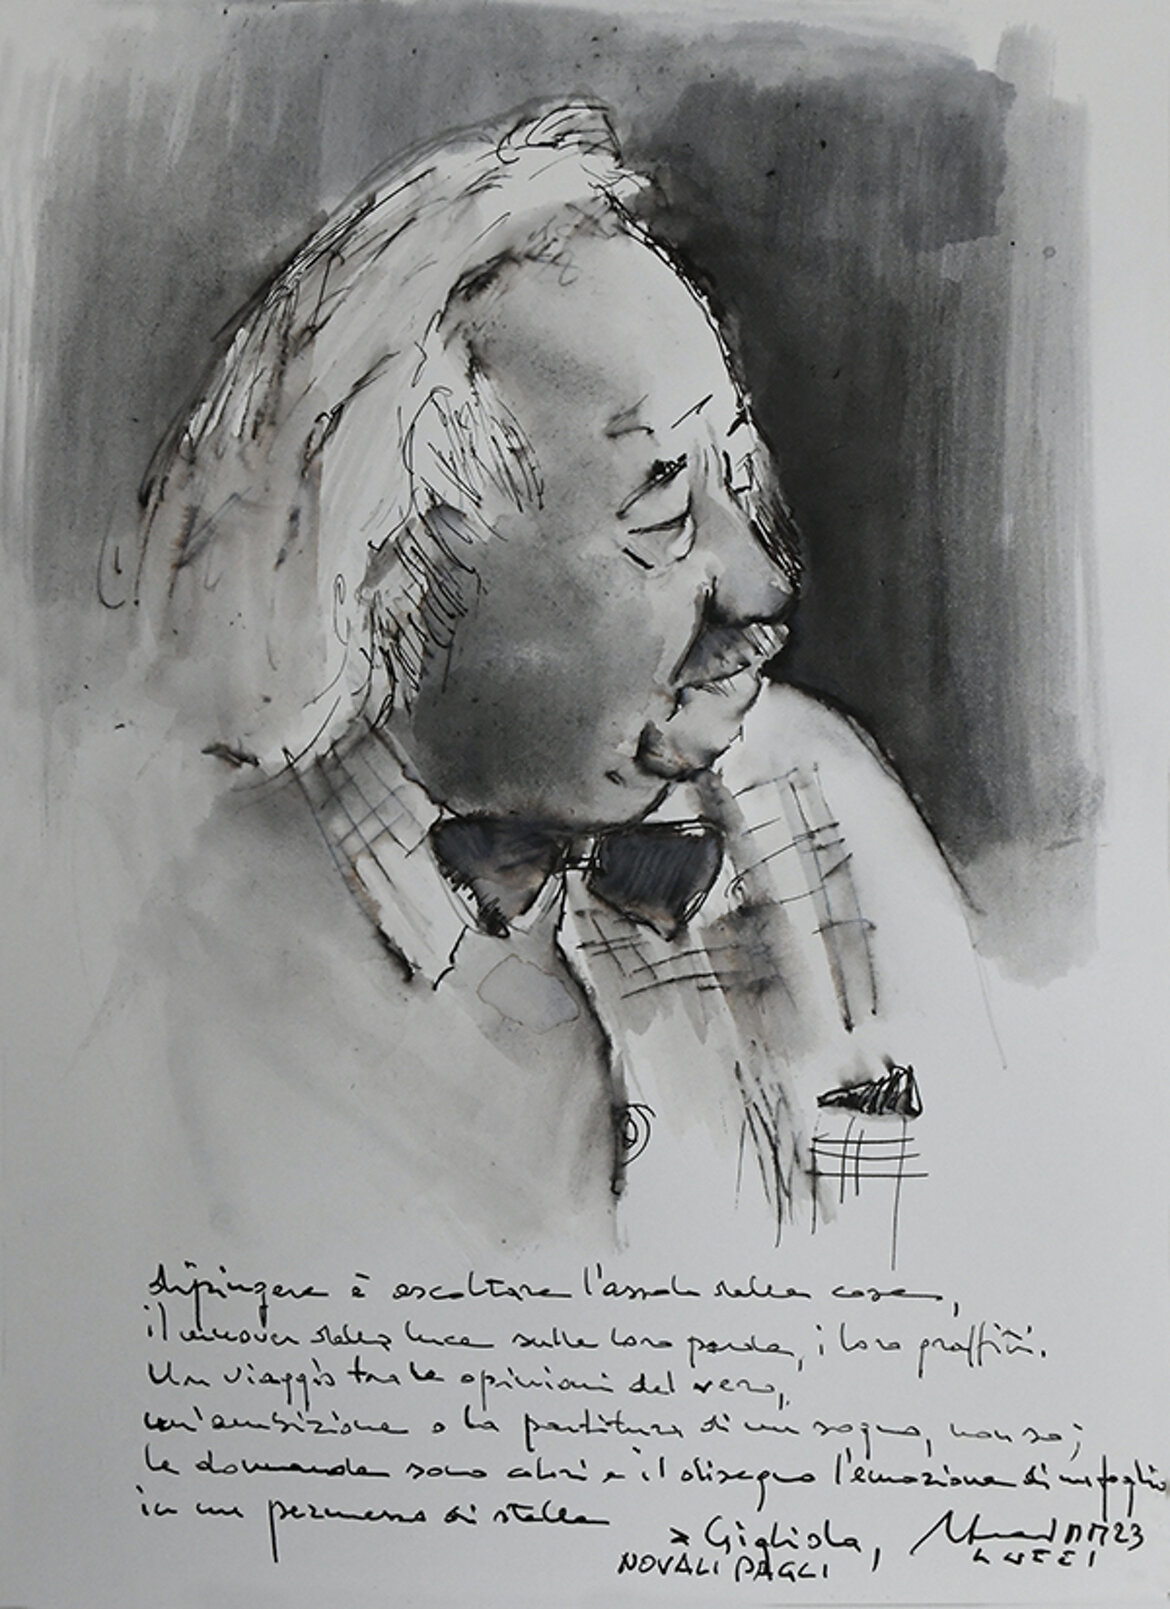 dipingere è ascoltare l'assolo delle cose,
il muover della luce sulle loro parole, i loro graffiti.
Un viaggio tra le opinioni del vero,
un'ambizione o la partitura di un sogno, non so;
le domande sono colori e il disegno l'emozione di un foglio
in un permesso di stelle
x Gigliola,
NOVALI PAGLI
MM23